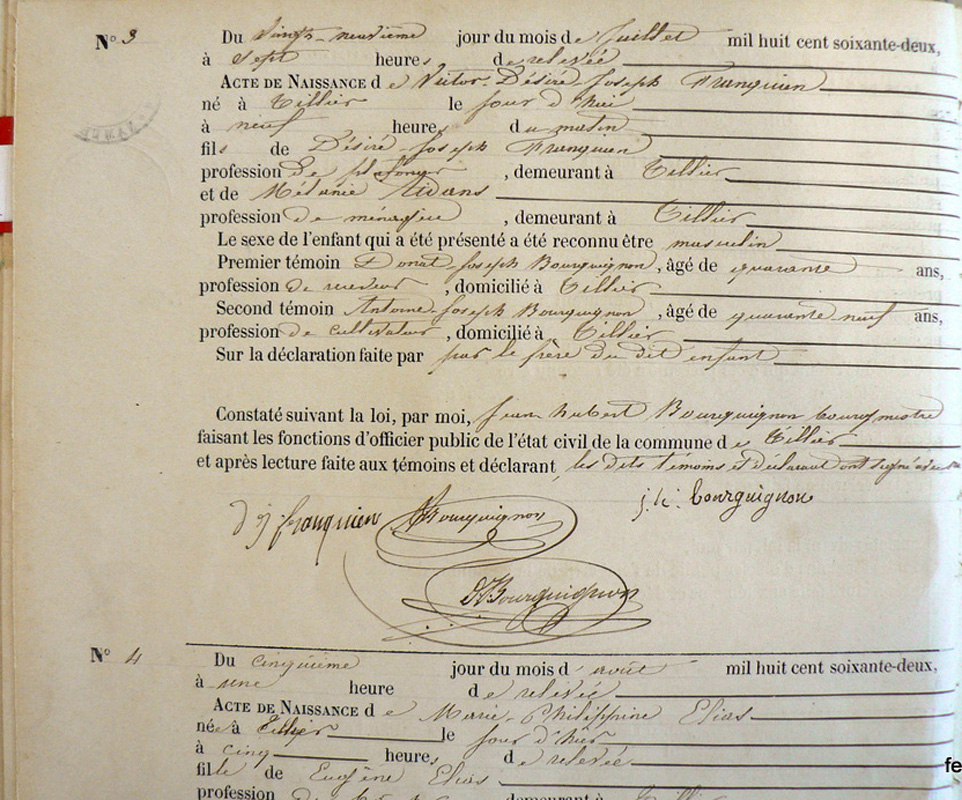 N° 3 Du Vingt-neuvième jour du mois de Juillet mil huit cent soixante-deux,
à sept heures de relevée
ACTE DE NAISSANCE de Victor-Désiré-Joseph Franquien
né à Tillier le jour d'hui
à neuf heures du matin
fils de Désiré-Joseph Franquien
profession de , demeurant à Tillier
et de Mélanie
profession de ménagère , demeurant à Tillier
Le sexe de l'enfant qui a été présenté a été reconnu être masculin
Premier témoin Donat Joseph Bourguignon, âgé de quarante ans,
profession de receveur , domicilié à Tillier
Second témoin Antoine-Joseph Bourguignon , âgé de quarante-neuf ans,
profession de cultivateur , domicilié à Tillier
Sur la déclaration faite par par le père du dit enfant
Constaté suivant la loi, par moi, Jean-hubert Bourguignon bourgmestre
faisant les fonctions d'officier public de l'état civil de la commune de Tillier
et après lecture faite aux témoins et déclarant les dits témoins et déclarant ont signé avec
j. h. bourguignon
d j franquien Bourguignon
D Bourguignon
N° 4 Du cinquième jour du mois d'août mil huit cent soixante-deux,
à une heure de relevée
ACTE DE NAISSANCE de Marie-Philippine Elias
née à Tillier le jour d'hier
à cinq heures de relevée
fille de Eugène Elias
profession demeurant à Tillier
fe